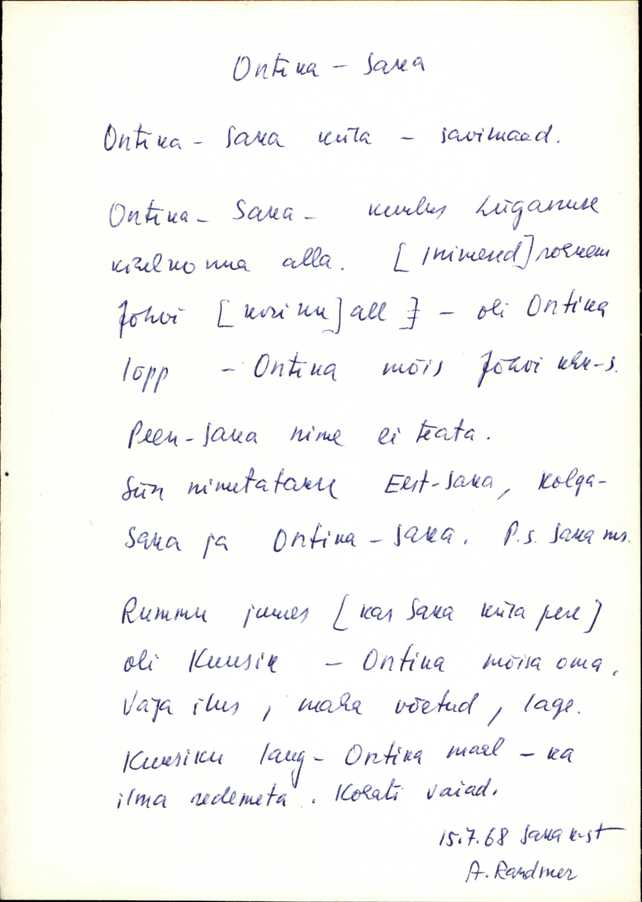 Ontika - Saka
Ontika - Saka küla - savimaad.
Ontika - Saka - kuulus Lüganuse
kihelkonna alla. [Inimesed] rohkem
Jõhvi [kiriku] all - oli Ontika
lõpp - Ontika mõis Jõhvi khk-s.
Peen-Saka nime ei teata.
Siin nimetatakse Eest-Saka, Kolga-
Saka ja Ontika - Saka. P.s. Saka ms.
Rummu juures [kas Saka küla pere]
oli Kuusik - Ontika mõisa oma,
väga ilus, maha võetud, lage.
Kuusiku lang - Ontika maal - ka
ilma redemeta. Korati vaiad.
15.7.68 Saka k-st
A. Randmer